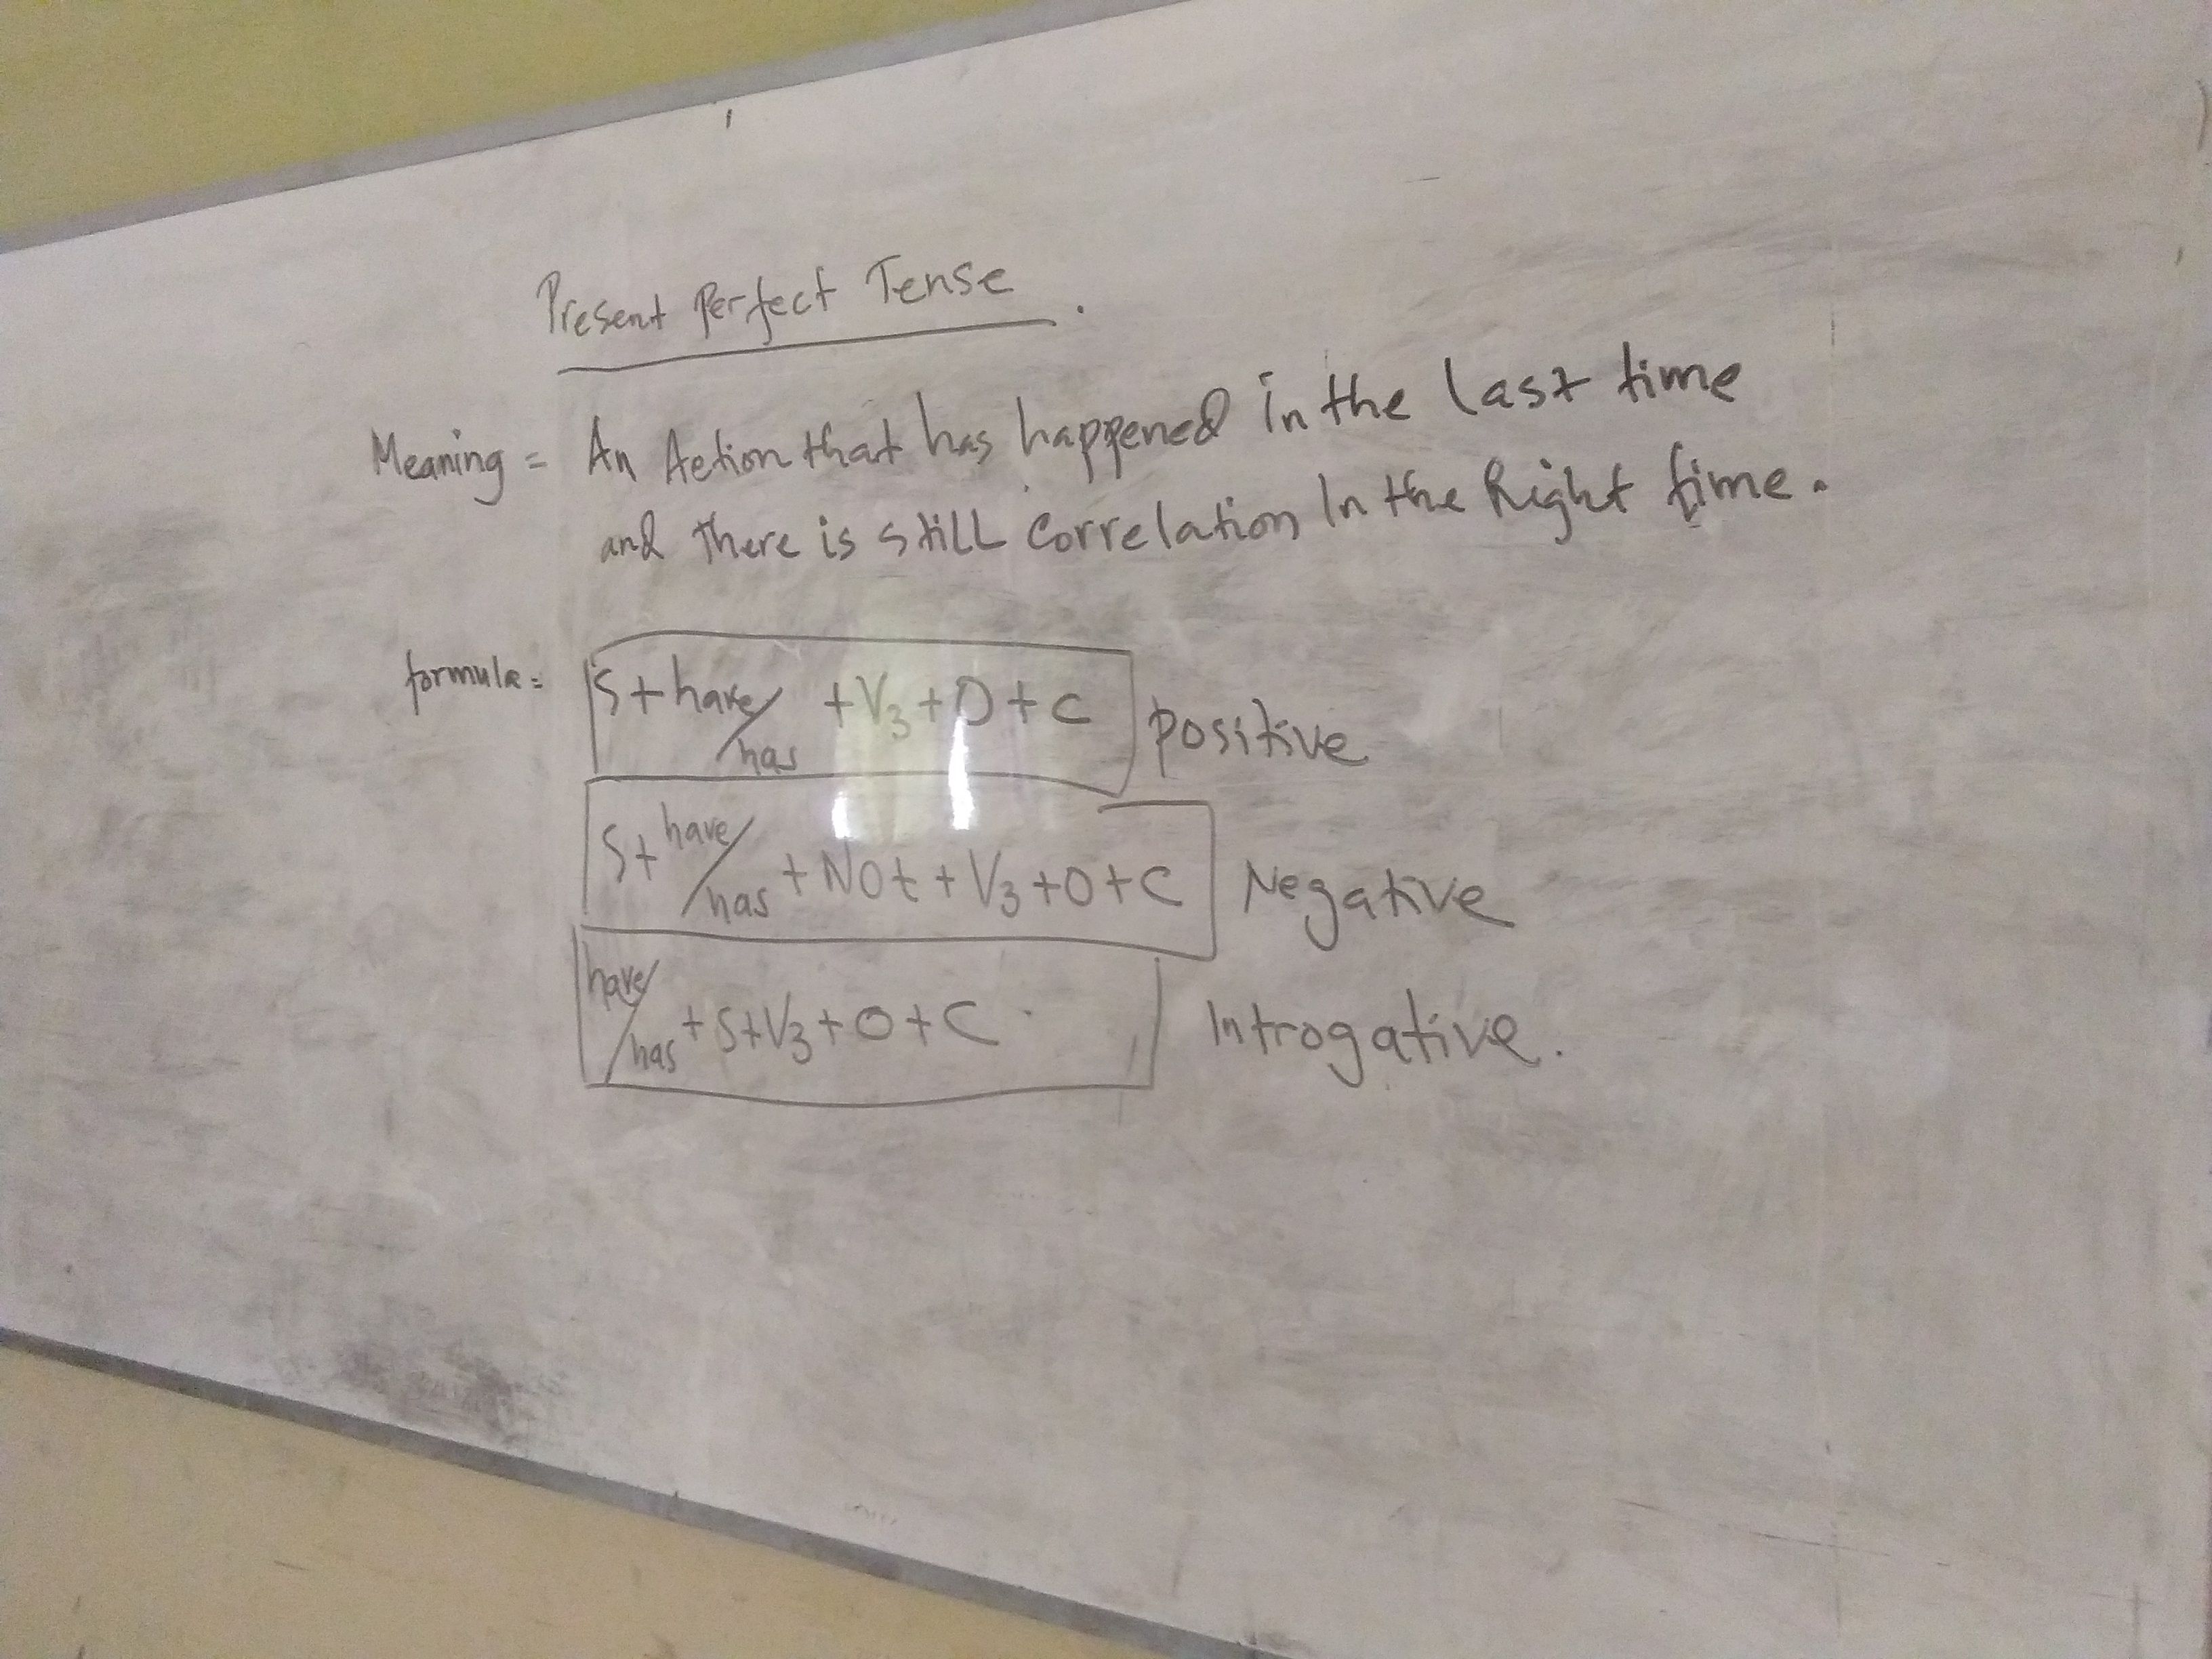 Present Perfect Tense.
Meaning = An Action that has happened in the last time
and there is still Correlation In the Right time.
formula = S + have/has + V3 + O + C positive
S + have/has + NOt + V3 + O + C Negative
have/has + S + V3 + O + C Introgative.